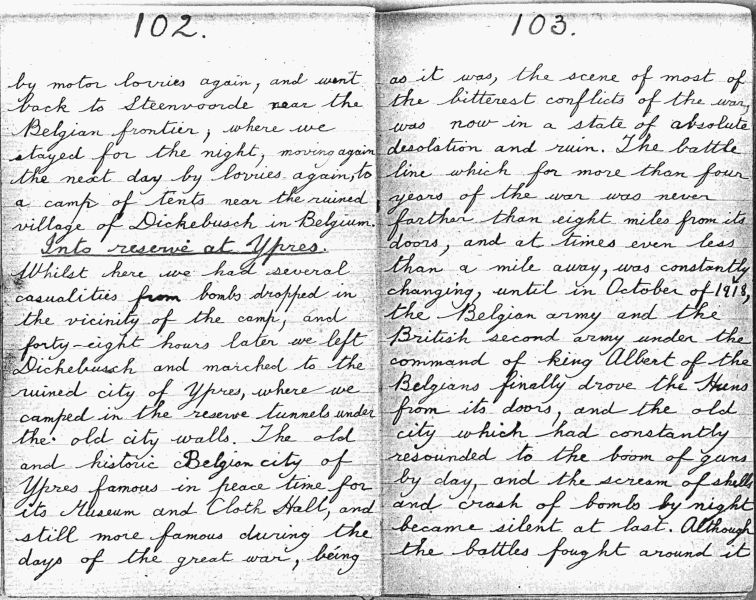 102.
by motor lorries again, and went
back to Steenvoorde near the
Belgian frontier, where we
stayed for the night, moving again
the next day by lorries again, to
a camp of tents near the ruined
village of Dickebusch in Belgium.
Into reserve at Ypres.
Whilst here we had several
casualities from bombs dropped in
the vicinity of the camp, and
forty-eight hours later we left
Dickebusch and marched to the
ruined city of Ypres, where we
camped in the reserve tunnels under
the old city walls. The old
and historic Belgian city of
Ypres famous in peace time for
its Museum and Cloth Hall, and
still more famous during the
days of the great war, being
103.
as it was, the scene of most of
the bitterest conflicts of the war,
was now in a state of absolute
desolation and ruin. The battle
line which for more than four
years of the war was never
farther than eight miles from its
doors, and at times even less
than a mile away, was constantly
changing, until in October of 1918,
the Belgian army and the
British second army under the
command of king Albert of the
Belgians finally drove the Huns
from its doors, and the old
city which had constantly
resounded to the boom of guns
by day, and the scream of shells
and crash of bombs by night
became silent at last. Although
the battles fought around it